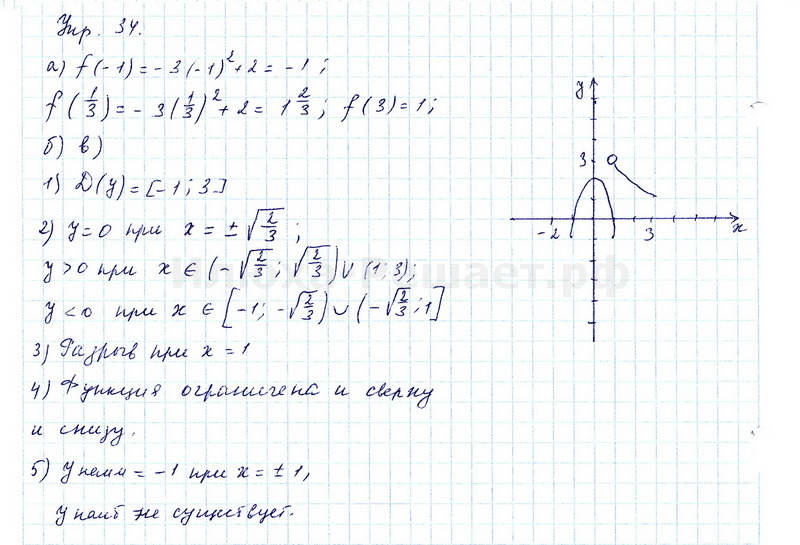 Упр. 34.
а) f(-1) = -3(-1)² + 2 = -1;
f(1/3) = -3(1/3)² + 2 = 1 2/3; f(3) = 1;
б) в)
1) D(y) = [-1; 3]
2) y = 0 при x = ±√(2/3);
y > 0 при x ∈ (-√(2/3); √(2/3)) ∪ (1; 3);
y < 0 при x ∈ [-1; -√(2/3)) ∪ (-√(2/3); 1]
3) Разрыв при x = 1
4) Функция ограничена и сверху
и снизу.
5) y наим = -1 при x = ±1,
y наиб не существует.
y
3
-2 3 x